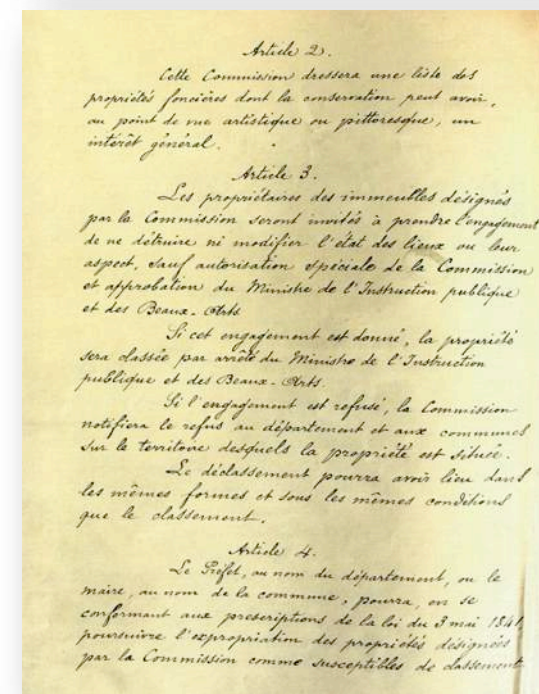 Article 2.
Cette Commission dressera une liste des
propriétés foncières dont la conservation peut avoir,
au point de vue artistique ou pittoresque, un
intérêt général.
Article 3.
Les propriétaires des immeubles désignés
par la Commission seront invités à prendre l'engagement
de ne détruire ni modifier l'état des lieux ou leur
aspect, sauf autorisation spéciale de la Commission
et approbation du Ministre de l'Instruction publique
et des Beaux-Arts
Si cet engagement est donné, la propriété
sera classée par arrêté du Ministre de l'Instruction
publique et des Beaux-Arts.
Si l'engagement est refusé, la Commission
notifiera le refus au département et aux communes
sur le territoire desquels la propriété est située.
Le déclassement pourra avoir lieu dans
les mêmes formes et sous les mêmes conditions
que le classement.
Article 4.
Le Préfet, au nom du département, ou le
maire, au nom de la commune, pourra, en se
conformant aux prescriptions de la loi du 3 mai 1841,
poursuivre l'expropriation des propriétés désignées
par la Commission comme susceptibles de classement